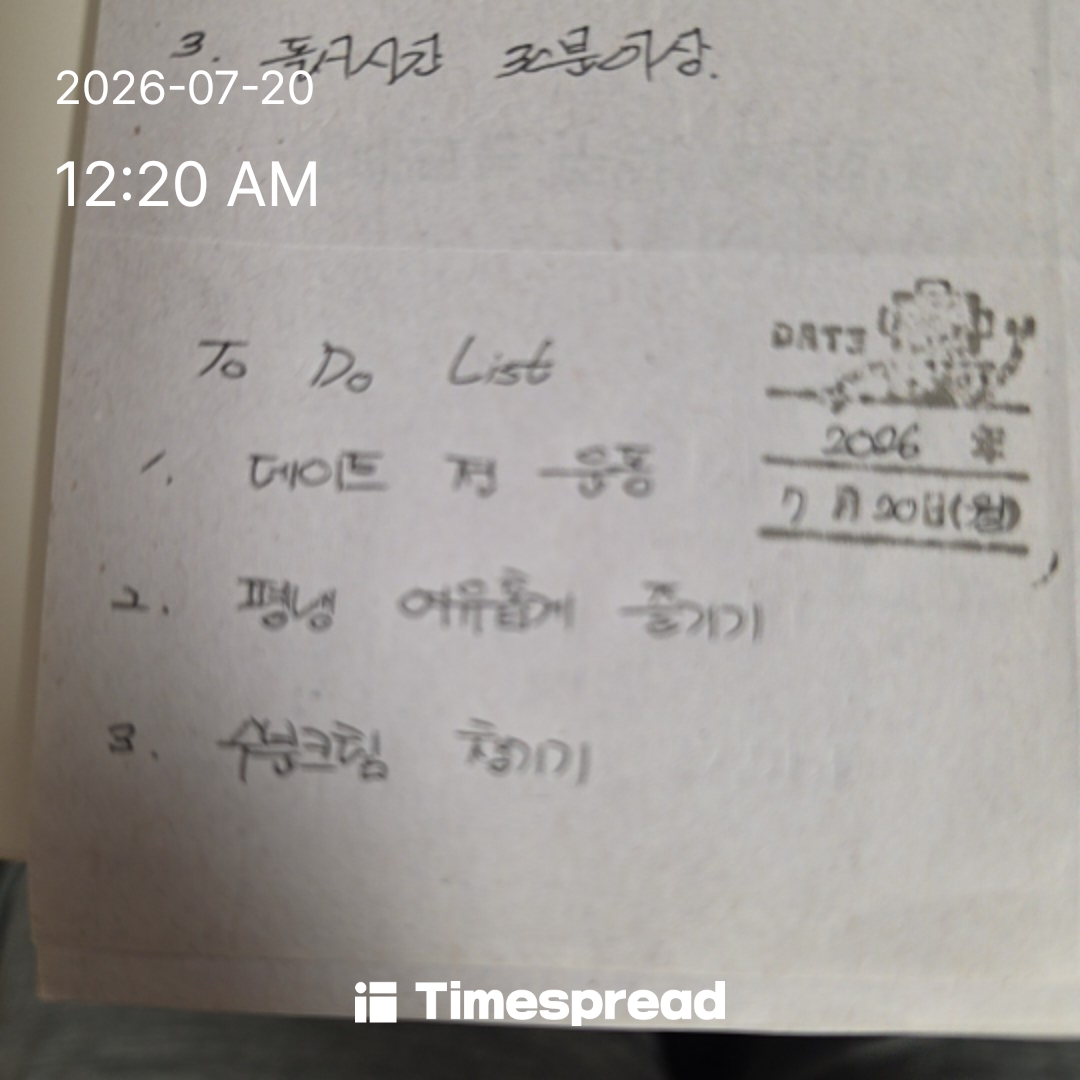 3. 독서시간 30분이상.
2026-07-20
12:20 AM
To Do List
DATE
2026 年
7月 20日(월)
1. 데이트 전 운동
2. 평냉 여유롭게 즐기기
3. 수분크림 챙기기
Timespread